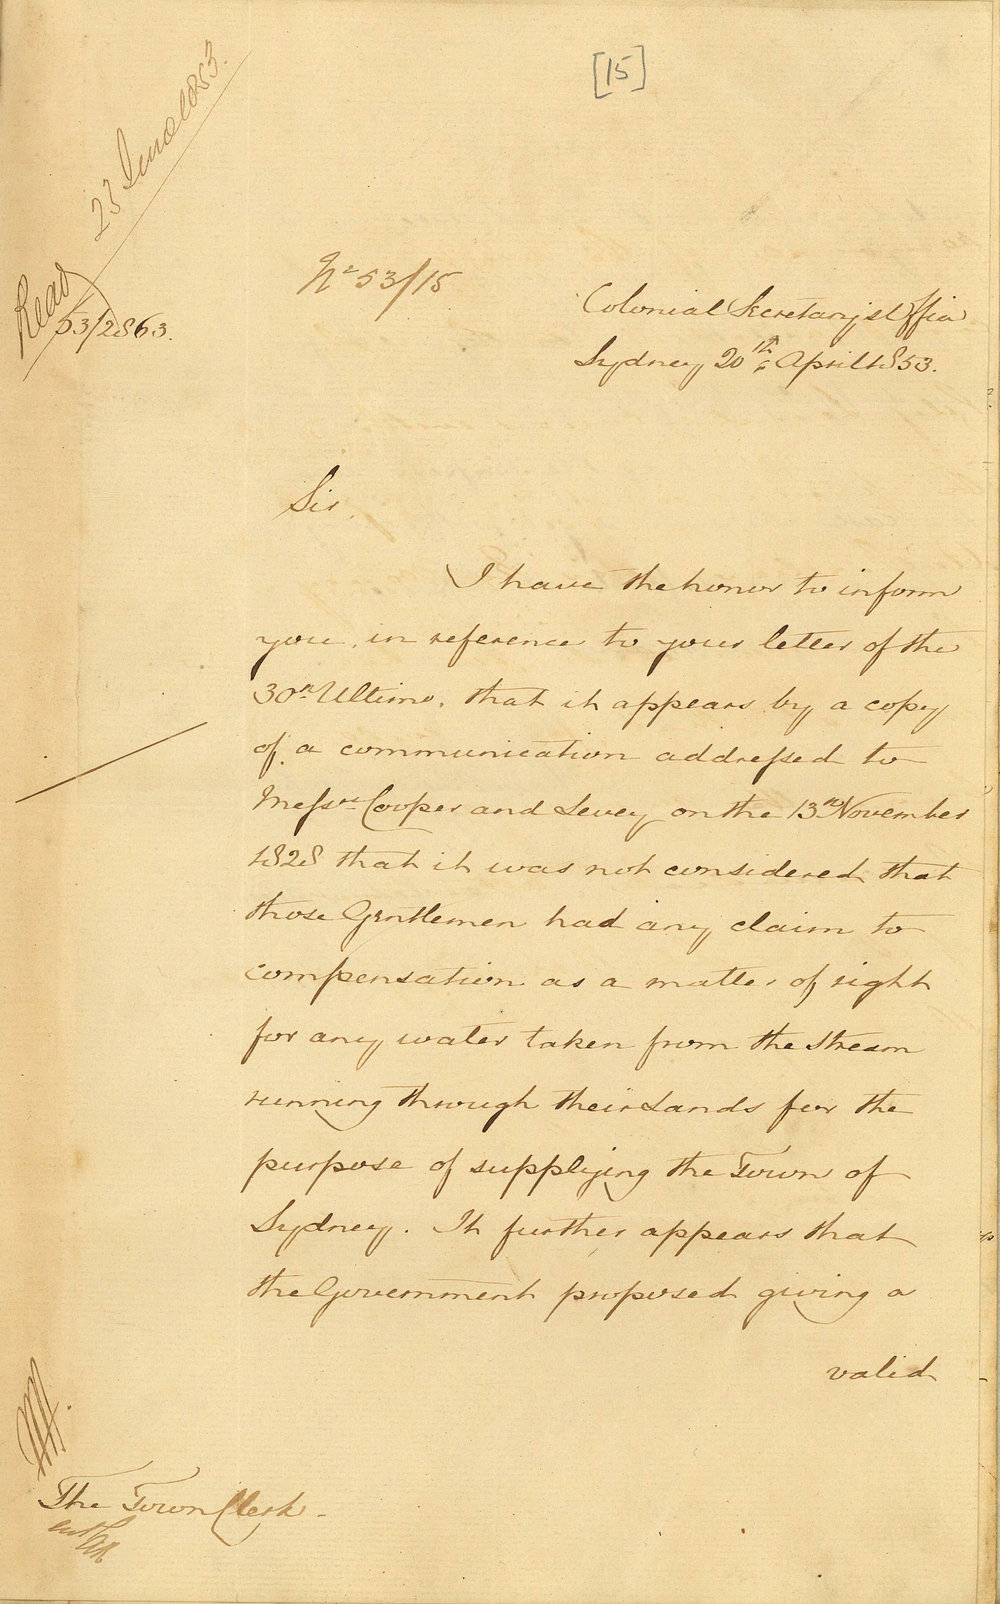 [15]
23 June 1853.
Read
53/2863.
No 53/15
Colonial Secretary's Office
Sydney 20th April 1853.
Sir,
I have the honor to inform
you, in reference to your letter of the
30th Ultimo, that it appears by a copy
of a communication addressed to
Messrs Cooper and Levey on the 13th November
1828 that it was not considered that
those Gentlemen had any claim to
compensation as a matter of right
for any water taken from the stream
running through their Lands for the
purpose of supplying the Town of
Sydney. It further appears that
the Government proposed giving a
valid
The Town Clerk.